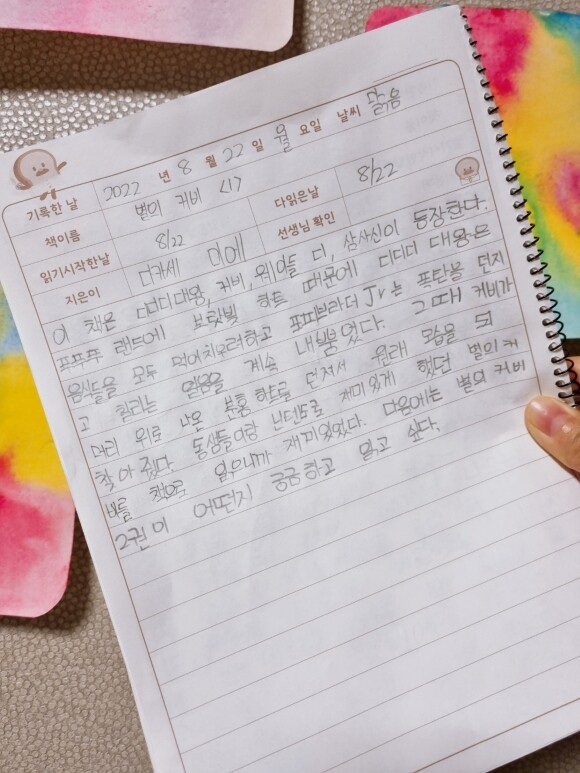 기록한 날 2022 년 8 월 22 일 월 요일 날씨 맑음
책이름 별의 커비 <1> 다읽은날 8/22
읽기시작한날 8/22 선생님 확인
지은이 다카세 미에
이 책은 디디디대왕, 커비, 웨이들 디, 삼사신이 등장한다.
푸푸푸 랜드에 보랏빛 하트 때문에 디디디 대왕은
음식들을 모두 먹어치우려하고 포피브라더 Jr는 폭탄을 던지
고 칠리는 얼음을 계속 내뿜었다. 그때 커비가
머리 위로 나온 분홍 하트로 던져서 원래 모습을 되
찾아 줬다. 동생들이랑 닌텐도로 재미있게 했던 별의 커
비를 책으로 읽으니까 재미있었다. 다음에는 별의 커비
2권이 어떤지 궁금하고 읽고 싶다.